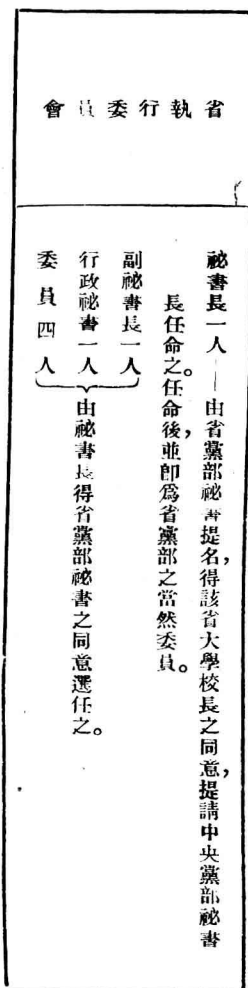 省執行委員會
祕書長一人——由省黨部祕書提名，得該省大學校長之同意，提請中央黨部祕書
長任命之。任命後，並卽爲省黨部之當然委員。
副祕書長一人
行政祕書一人
委員四人
由祕書長得省黨部祕書之同意選任之。